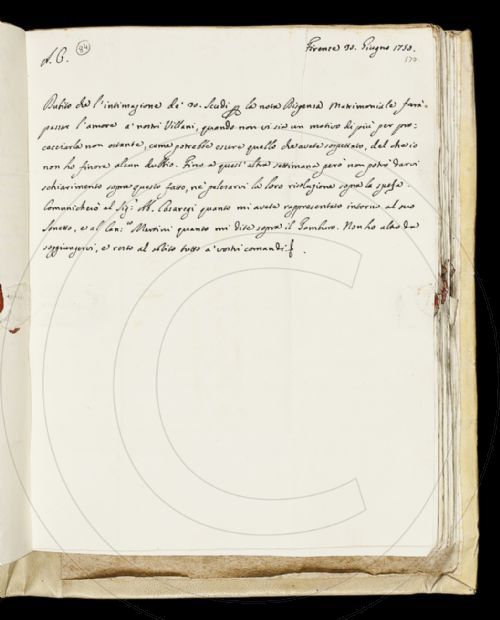 A. C. 84 Firenze 30. Giugno 1750.
570.
Dubito che l'intimazione de' 30. Scudi p la nota Dispensa Matrimoniale farà
passar l'amore a' nostri Villani, quando non vi sia un motivo di più per pro-
cacciarla non ostante, come potrebbe essere quello che avete sospettato, del che io
non ho finora alcun dubbio. Fino a quest'altra settimana però non potrò darvi
schiarimento sopra questo fatto, nè palesarvi la loro risoluzione sopra la spesa.
Comunicherò al Sig.r M. Casaregi quanto mi avete rappresentato intorno al suo
Sonetto, e al Can.co Martini quanto mi dite sopra il Tamburo. Non ho altro da
soggiugnervi, e resto al solito tutto a' vostri comandi